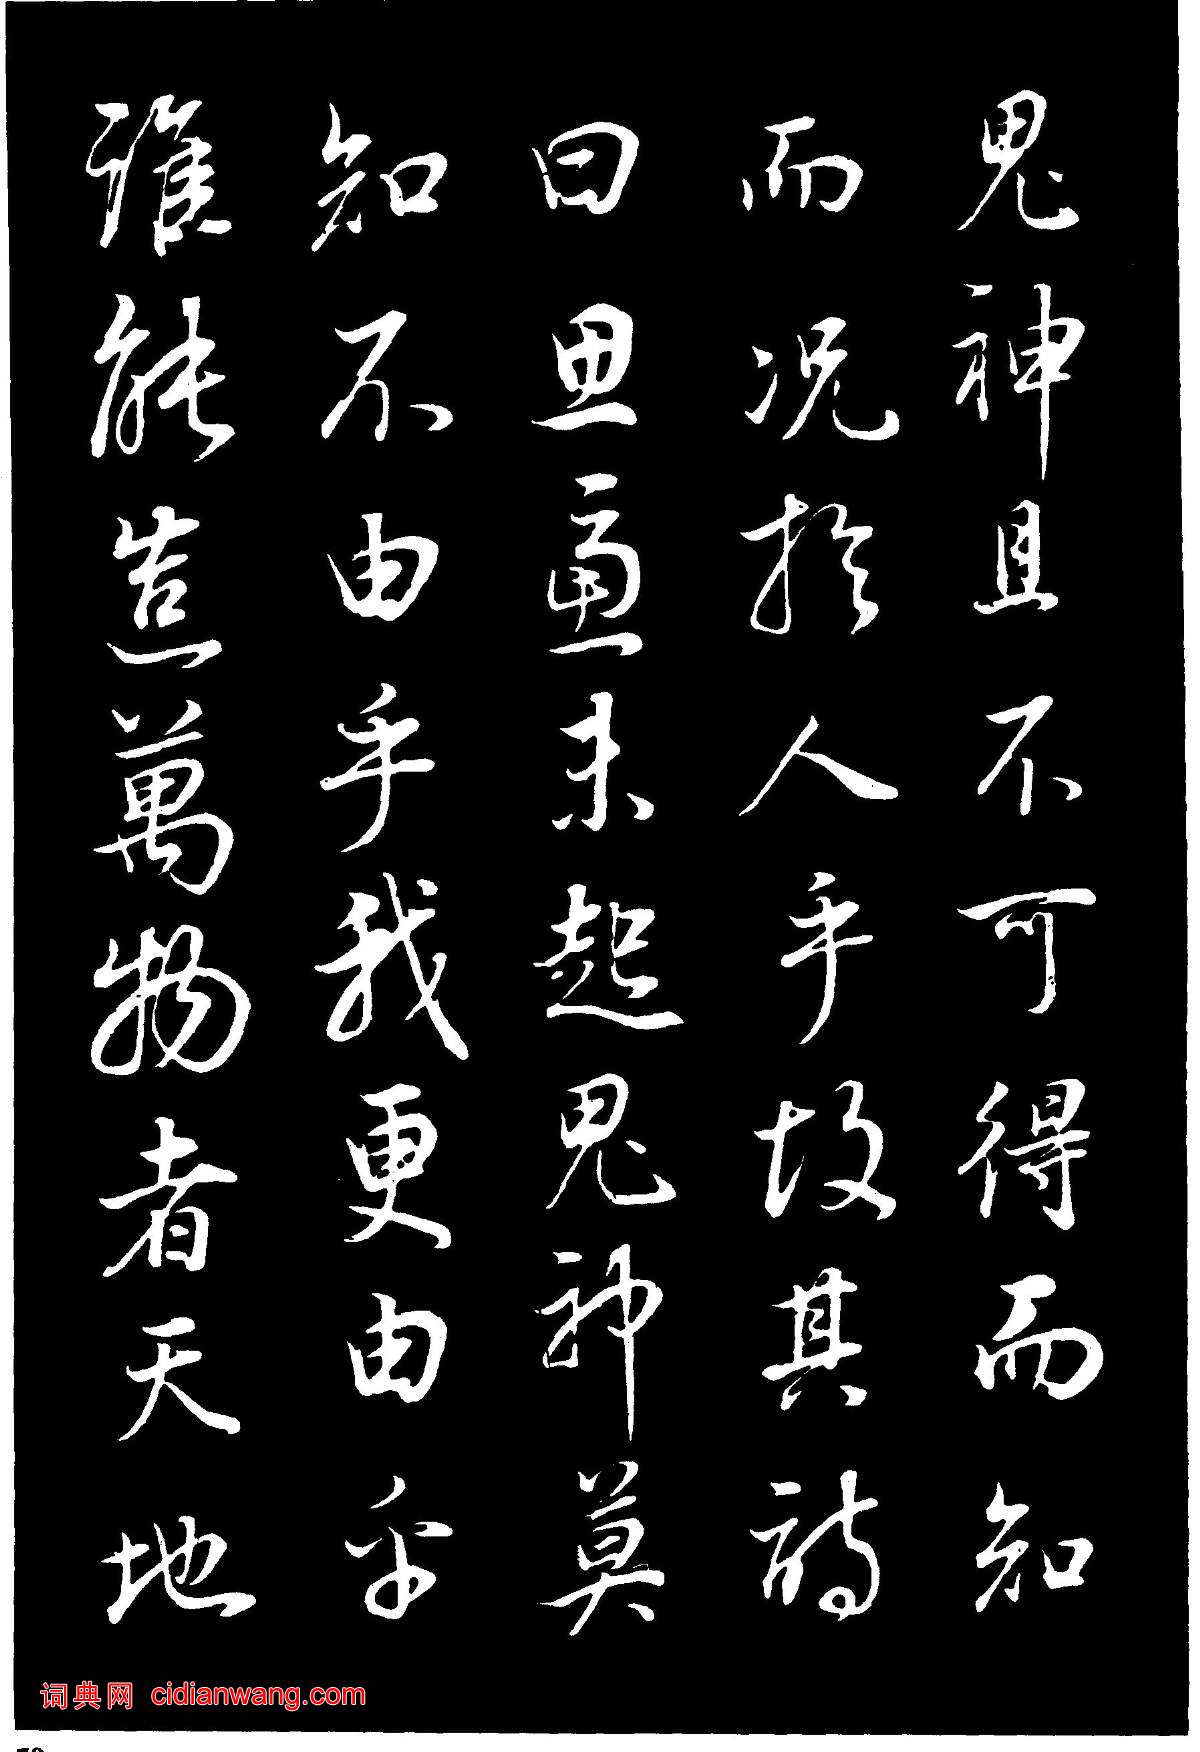 鬼神且不可得而知
而况於人乎故其詩
曰思慮未起鬼神莫
知不由乎我更由乎
誰能造萬物者天地
词典网 cidianwang.com